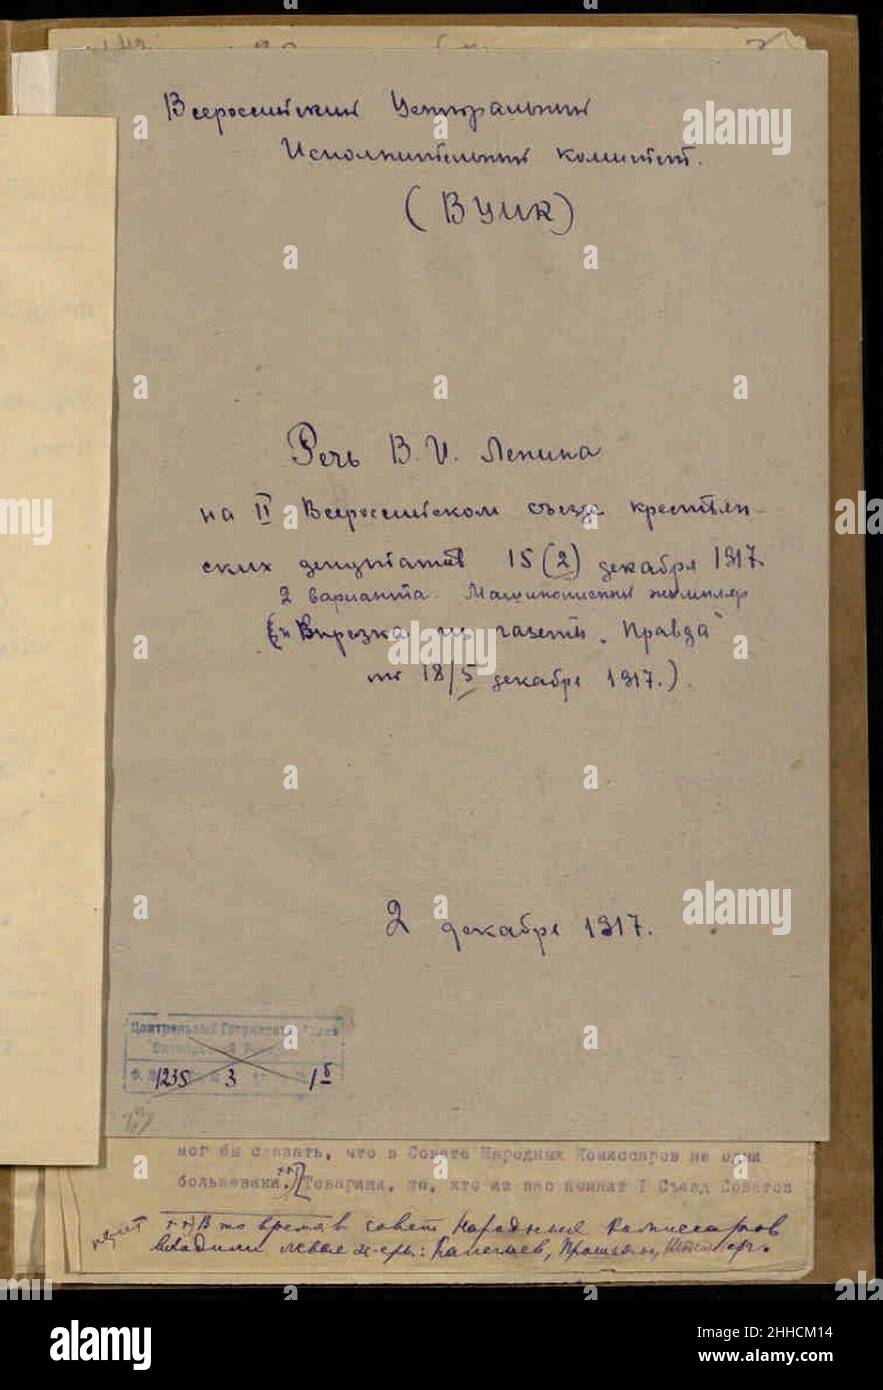 Всероссийский Центральный
Исполнительный комитет.
(ВЦИК)
Речь В. И. Ленина
на II Всероссийском съезде крестьян-
ских депутатов 15 (2) декабря 1917.
2 варианта. Машинописный экземпляр
(и Вырезка из газеты „Правда"
от 18/5 декабря 1917.)
2 декабря 1917.
Центральный Государств. Архив
1235 3 15
мог бы сказать, что в Совете Народных Комиссаров не одни
большевики. Товарищи, те, кто из вас помнит I Съезд Советов
хх) В то время в совет Народных Комиссаров
входили левые с-еры: Колегаев, Прошьян, Штейнберг.
alamy
Image ID: 2HHCM14
www.alamy.com